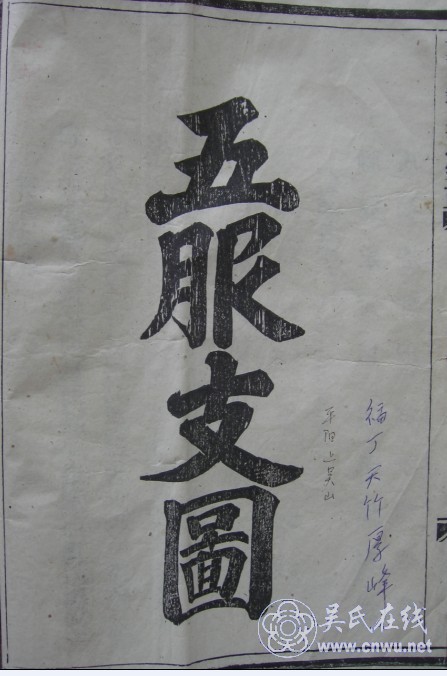 五服支圖
福丁天竹厚峰
平阳上吴山
吴氏在线
www.cnwu.net